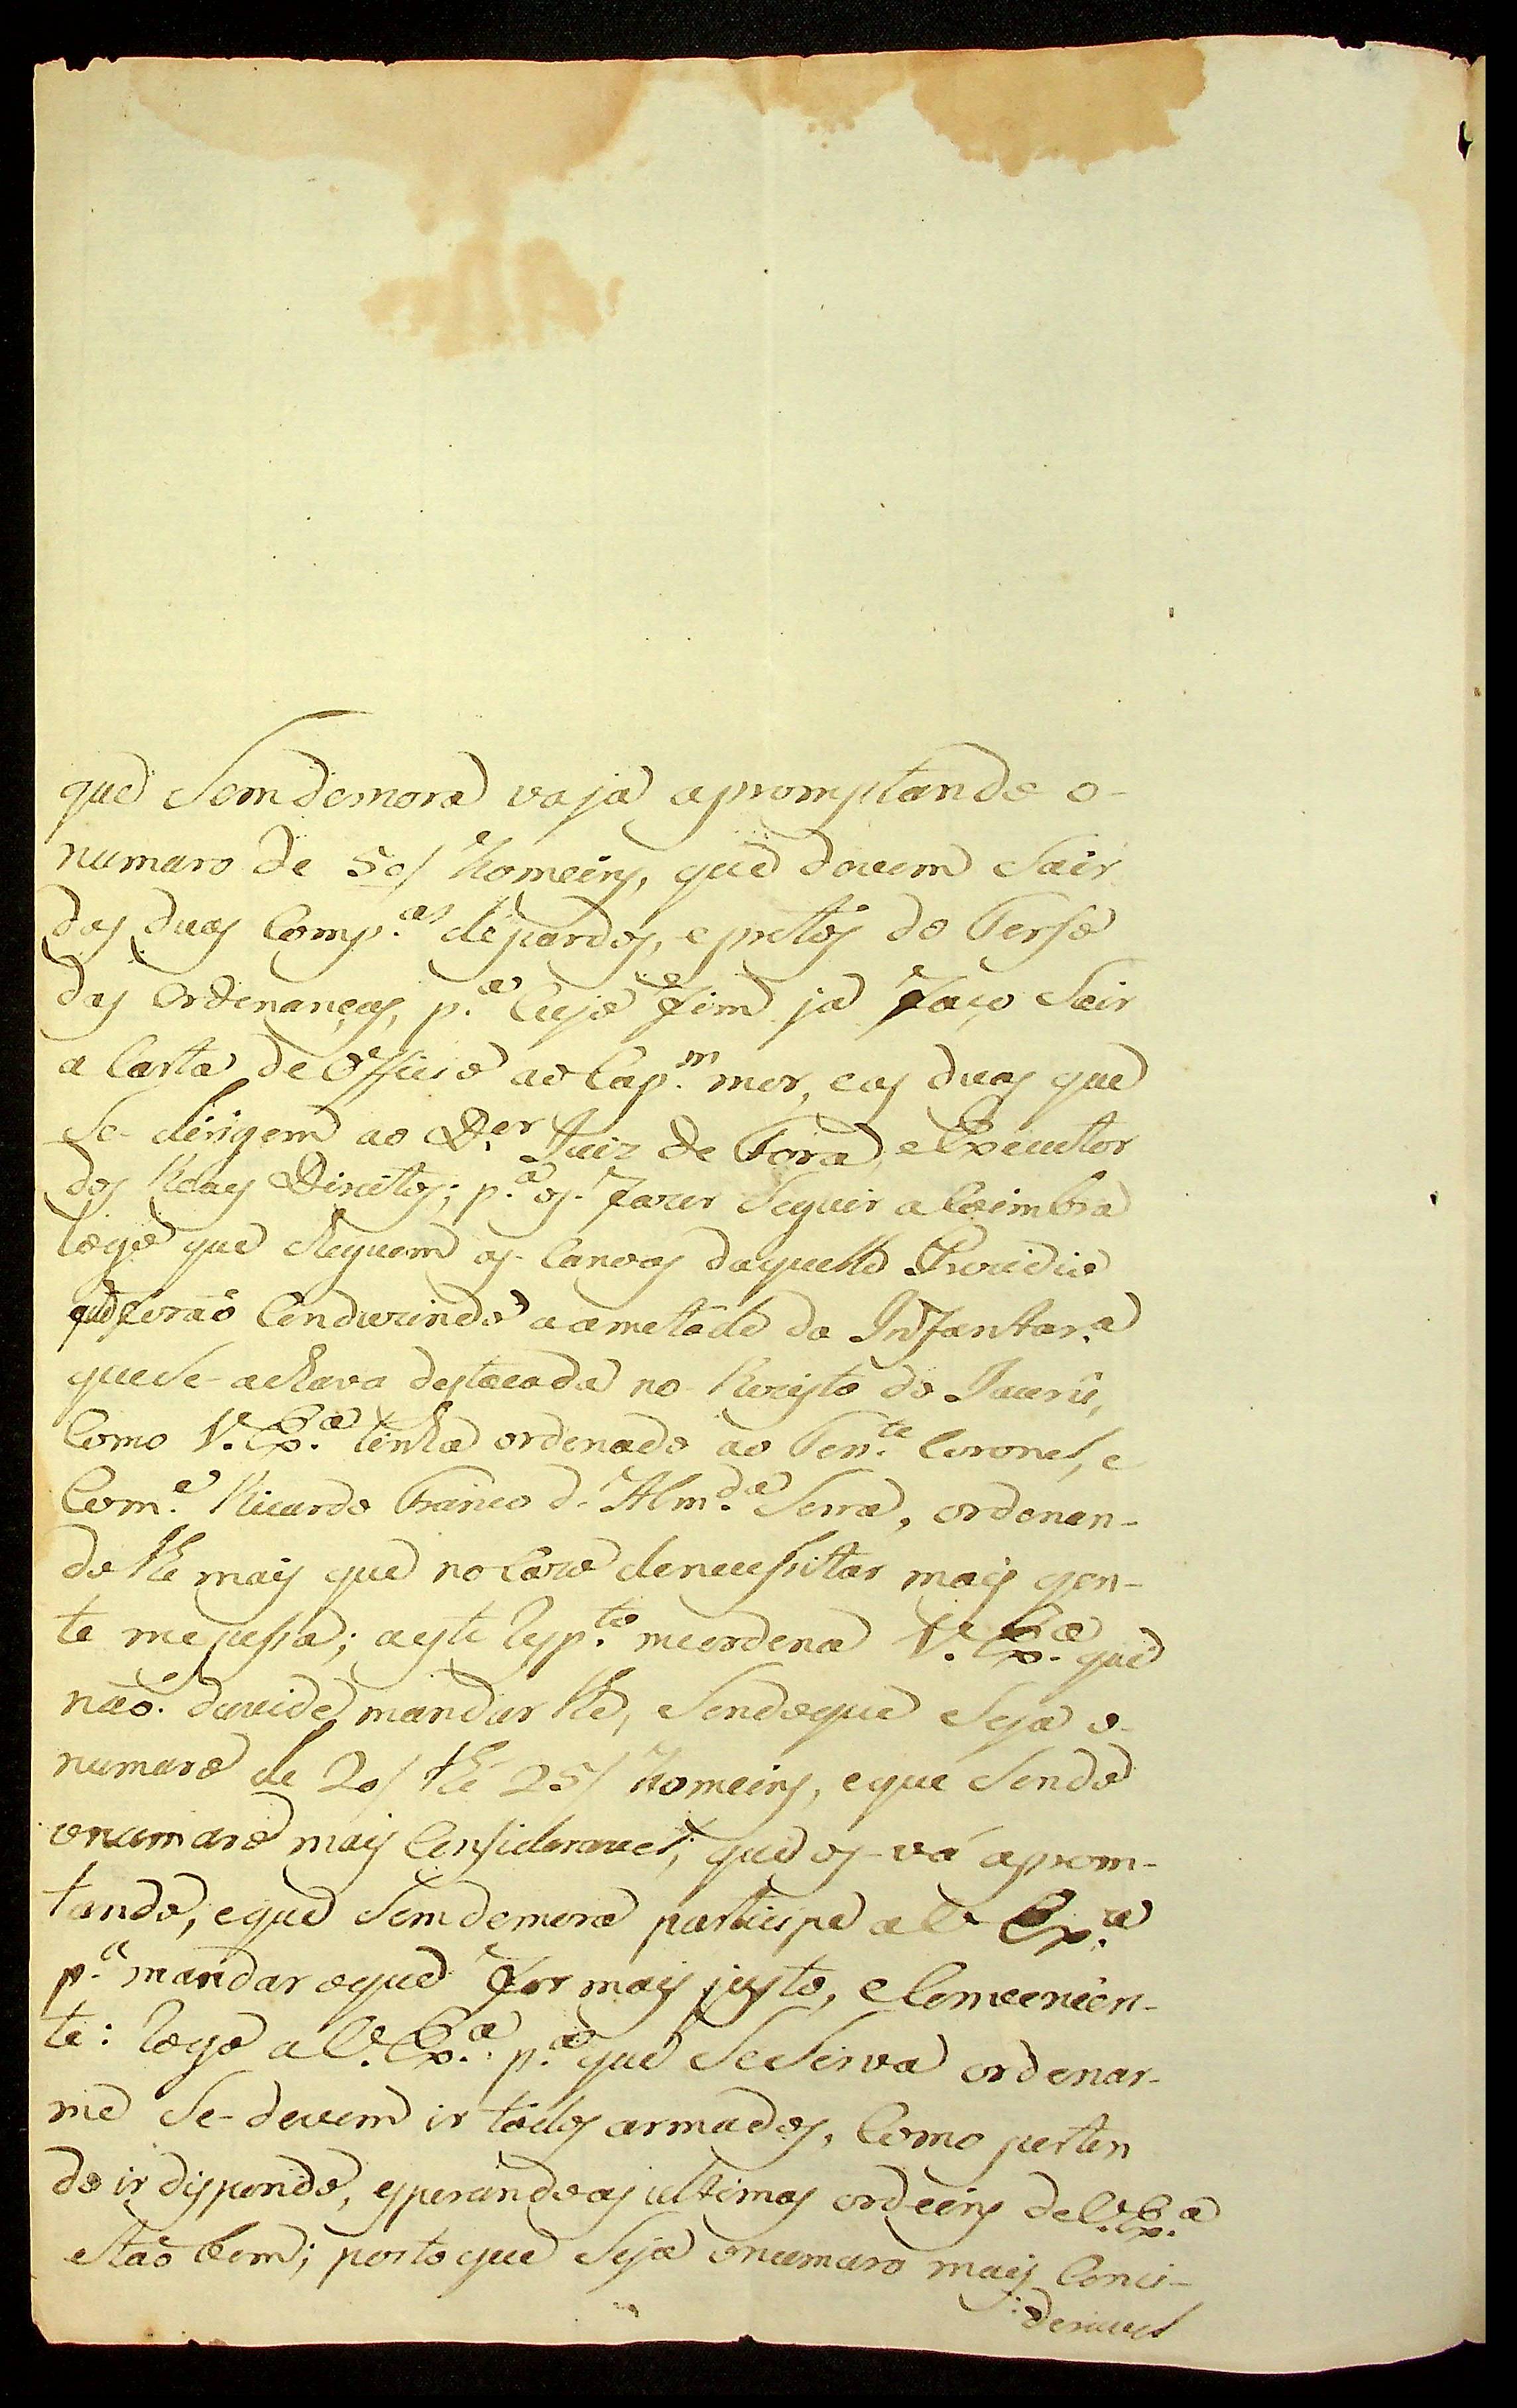 que Sem demora vaja apromptando o-
numaro de 50/ homeins, que devem Sair
das duas Comp.as de pardos, e pretos do Terso
das Ordenanças, p.a Cujo fim ja faço Sair
a Carta de Officio ao Cap.m mor, e as duas que
Se-dirigem ao D.or Juiz de Fora, e Executor
dos Reays Direitos; p.a os-fazer Seguir a Coimbra
logo que cheguem as-Canoas daquelle Prezidio
que forão Conduzindo a ametade da Infantar.a
que Se-achava destacada no-Rezisto do Jaurú,
Como V. Ex.a tinha ordenado ao Ten.te Coronel, e
Com.e Ricardo Franco d-Alm.da Serra, ordenan-
do lhe mais que no Cazo de necessitar mais gen-
te me pessa; a este resp.to me ordena V. Ex.a que
não duvide mandar lhe, Sendo que Seja o-
numaro de 20/ thé 25/ homeins, e que Sendo
o numaro mais Consideravel; que os-vá aprom-
tando, e que Sem demora participe a V. Ex.a
p.a mandar o que for mais justo, e Conveenien-
te: rogo a V. Ex.a p.a que Se Sirva ordenar-
me Se-devem ir todos armados, Como perten
do ir dispondo, esperando as ultimas ordeins de V. Ex.a
e tão bem; posto que Seja o numaro mais Conci-
deravel